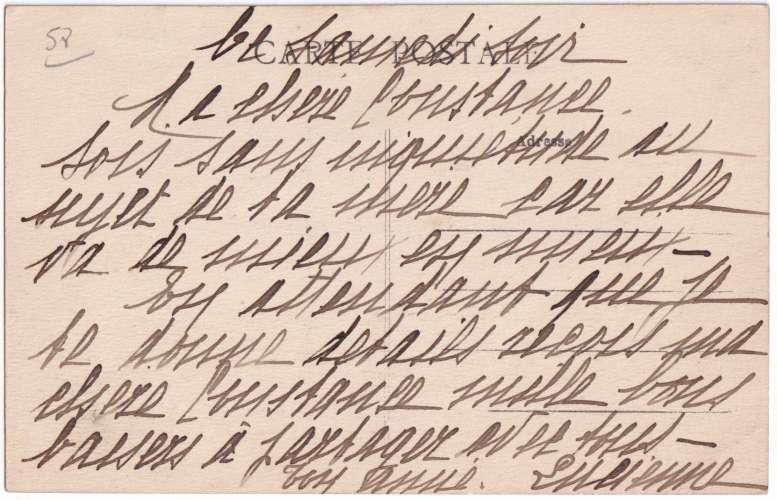 58
CARTE POSTALE
Ce samedi soir
Ma chère Constance.
Sois sans inquiétude au
Adresse
sujet de ta mère car elle
va de mieux en mieux —
En attendant que je
te donne détails reçois ma
chère Constance mille bons
baisers à partager avec tous —
ton amie. Lucienne